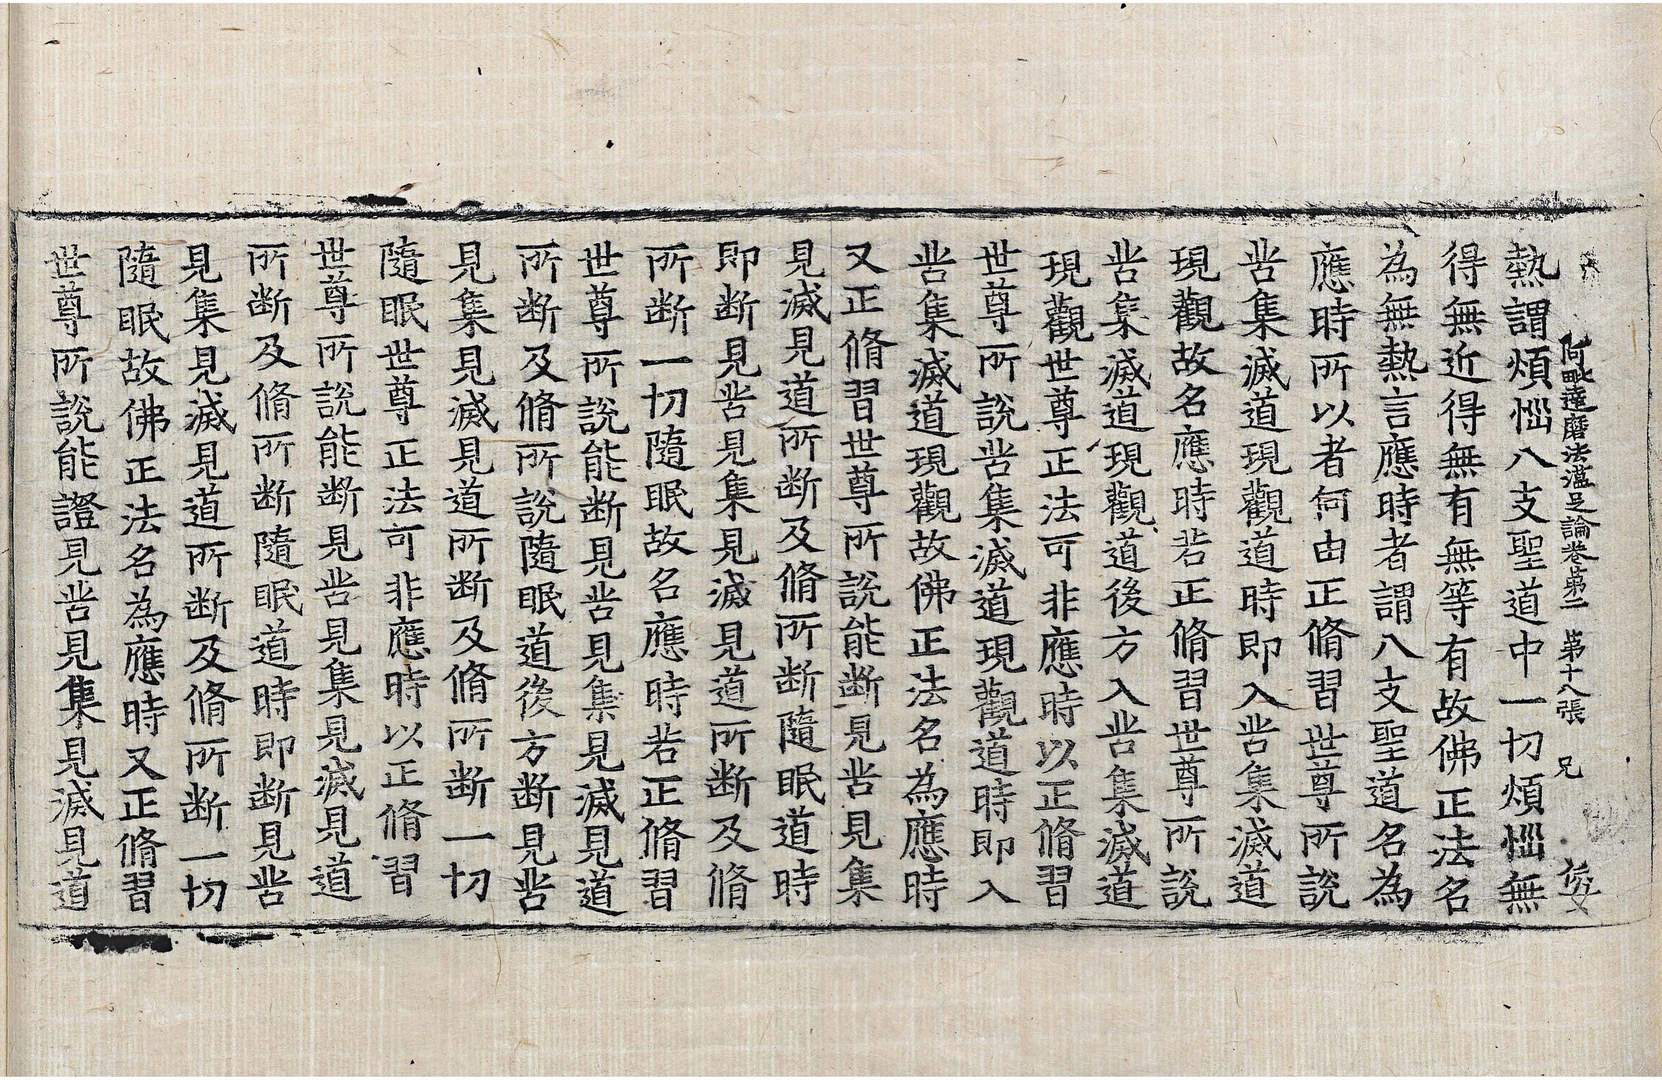 阿毗達磨法蘊足論卷第二 第十八張 兄
熱謂煩惱八支聖道中一切煩惱無
得無近得無有無等有故佛正法名
為無熱言應時者謂八支聖道名為
應時所以者何由正脩習世尊所說
苦集滅道現觀道時即入苦集滅道
現觀故名應時若正脩習世尊所說
苦集滅道現觀道後方入苦集滅道
現觀世尊正法可非應時以正脩習
世尊所說苦集滅道現觀道時即入
苦集滅道現觀故佛正法名為應時
又正脩習世尊所說能断見苦見集
見滅見道所断及脩所断隨眠道時
即断見苦見集見滅見道所断及脩
所断一切隨眠故名應時若正脩習
世尊所說能断見苦見集見滅見道
所断及脩所說隨眠道後方断見苦
見集見滅見道所断及脩所断一切
隨眠世尊正法可非應時以正脩習
世尊所說能断見苦見集見滅見道
所断及脩所断隨眠道時即断見苦
見集見滅見道所断及脩所断一切
隨眠故佛正法名為應時又正脩習
世尊所說能證見苦見集見滅見道